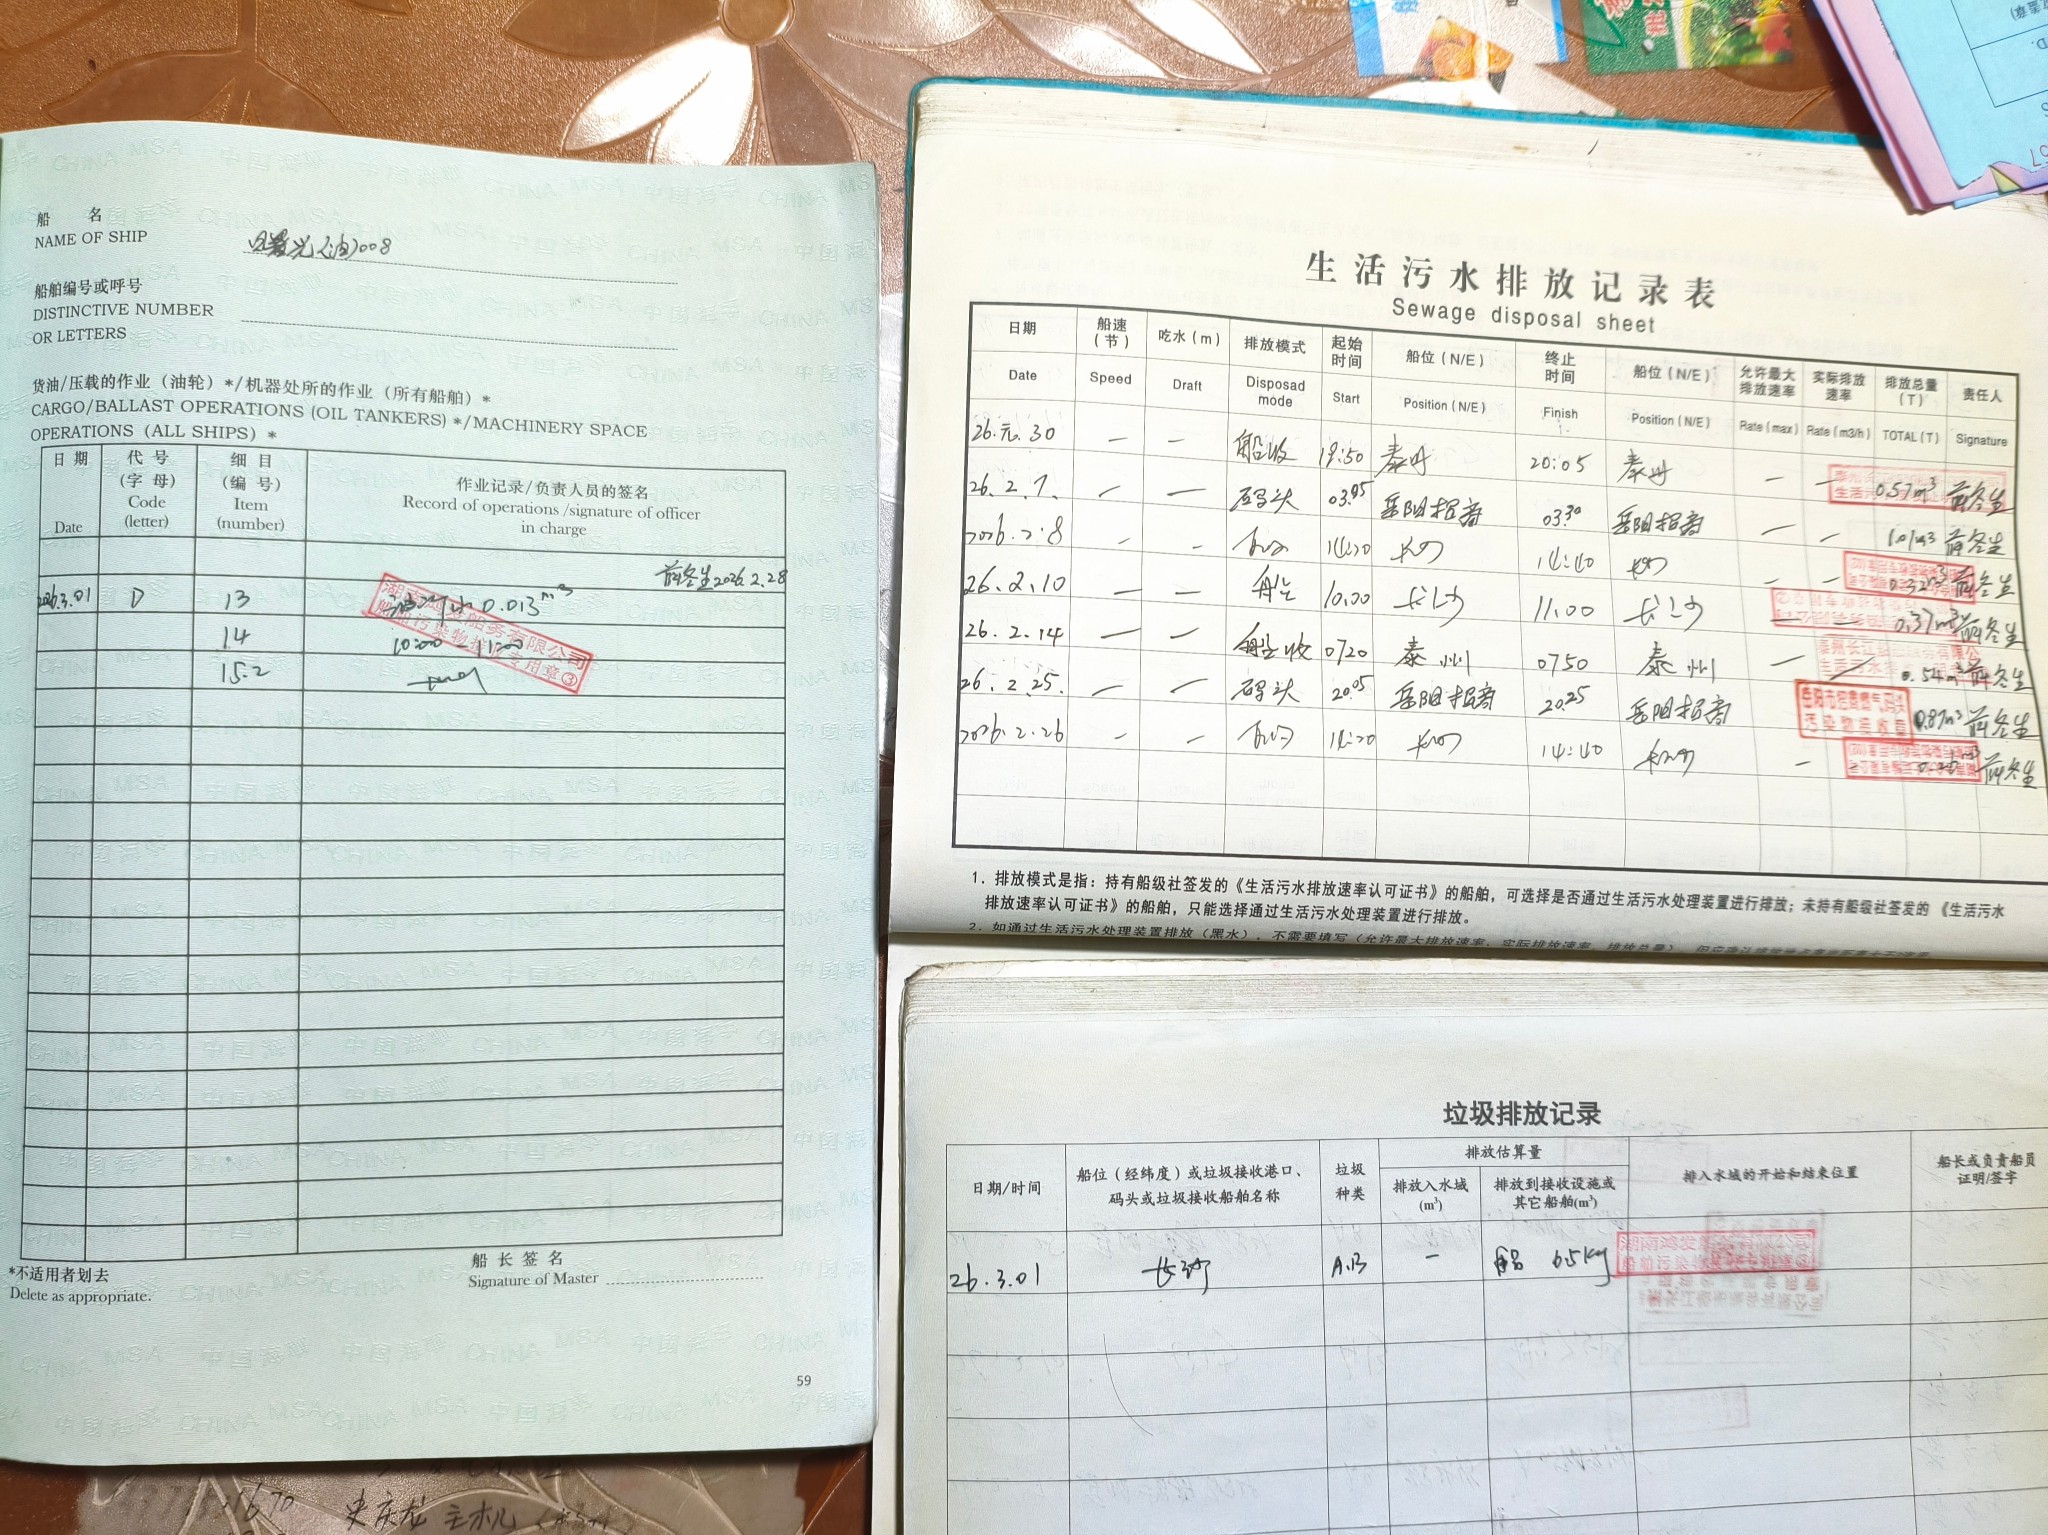 船名
NAME OF SHIP
曙光(油)008
船舶编号或呼号
DISTINCTIVE NUMBER
OR LETTERS
货油/压载的作业（油轮）*/机器处所的作业（所有船舶）*
CARGO/BALLAST OPERATIONS (OIL TANKERS) */MACHINERY SPACE
OPERATIONS (ALL SHIPS) *
日期 代号 细目 作业记录/负责人员的签名
(字母) (编号) Record of operations /signature of officer
Date Code (letter) Item (number) in charge
2026.2.28
2026.3.01 D 13 油污水 0.013m³
14 10:00-11:00
15.2
湖南鸿发船务有限公司
船舶污染物接收专用章③
船长签名
*不适用者划去 Signature of Master
Delete as appropriate.
59
生活污水排放记录表
Sewage disposal sheet
日期 船速(节) 吃水(m) 排放模式 起始时间 船位(N/E) 终止时间 船位(N/E) 允许最大排放速率 实际排放速率 排放总量(T) 责任人
Date Speed Draft Disposad mode Start Position(N/E) Finish Position(N/E) Rate(max) Rate(m3/h) TOTAL(T) Signature
26.元.30 — — 船收 19:50 泰州 20:05 泰州 — — 0.57m³
26.2.7. — — 码头 03.05 岳阳招商 03.30 岳阳招商 — — 1.01m³
2026.2.8 — — 14:20 长沙 14:40 长沙 — — 0.32m³
26.2.10 — — 船 10.00 长沙 11.00 长沙 — — 0.37m³
26.2.14 — — 船收 0720 泰州 0750 泰州 — — 0.54m³
26.2.25. — — 码头 20.05 岳阳招商 20.25 岳阳招商 0.87m³
2026.2.26 — — 14:20 长沙 14:40 长沙 —
岳阳市招商燃气码头
污染物接收章
1. 排放模式是指：持有船级社签发的《生活污水排放速率认可证书》的船舶，可选择是否通过生活污水处理装置进行排放；未持有船级社签发的《生活污水
排放速率认可证书》的船舶，只能选择通过生活污水处理装置进行排放。
2. 如通过生活污水处理装置排放（黑水），不需要填写（允许最大排放速率、实际排放速率、排放总量）
垃圾排放记录
日期/时间 船位（经纬度）或垃圾接收港口、码头或垃圾接收船舶名称 垃圾种类 排放估算量 排入水域的开始和结束位置 船长或负责船员证明/签字
排放入水域(m³) 排放到接收设施或其它船舶(m³)
26.3.01 长沙 A.B — 船 65kg
湖南鸿发船务有限公司
船舶污染物接收专用章③
史庆龙 主机